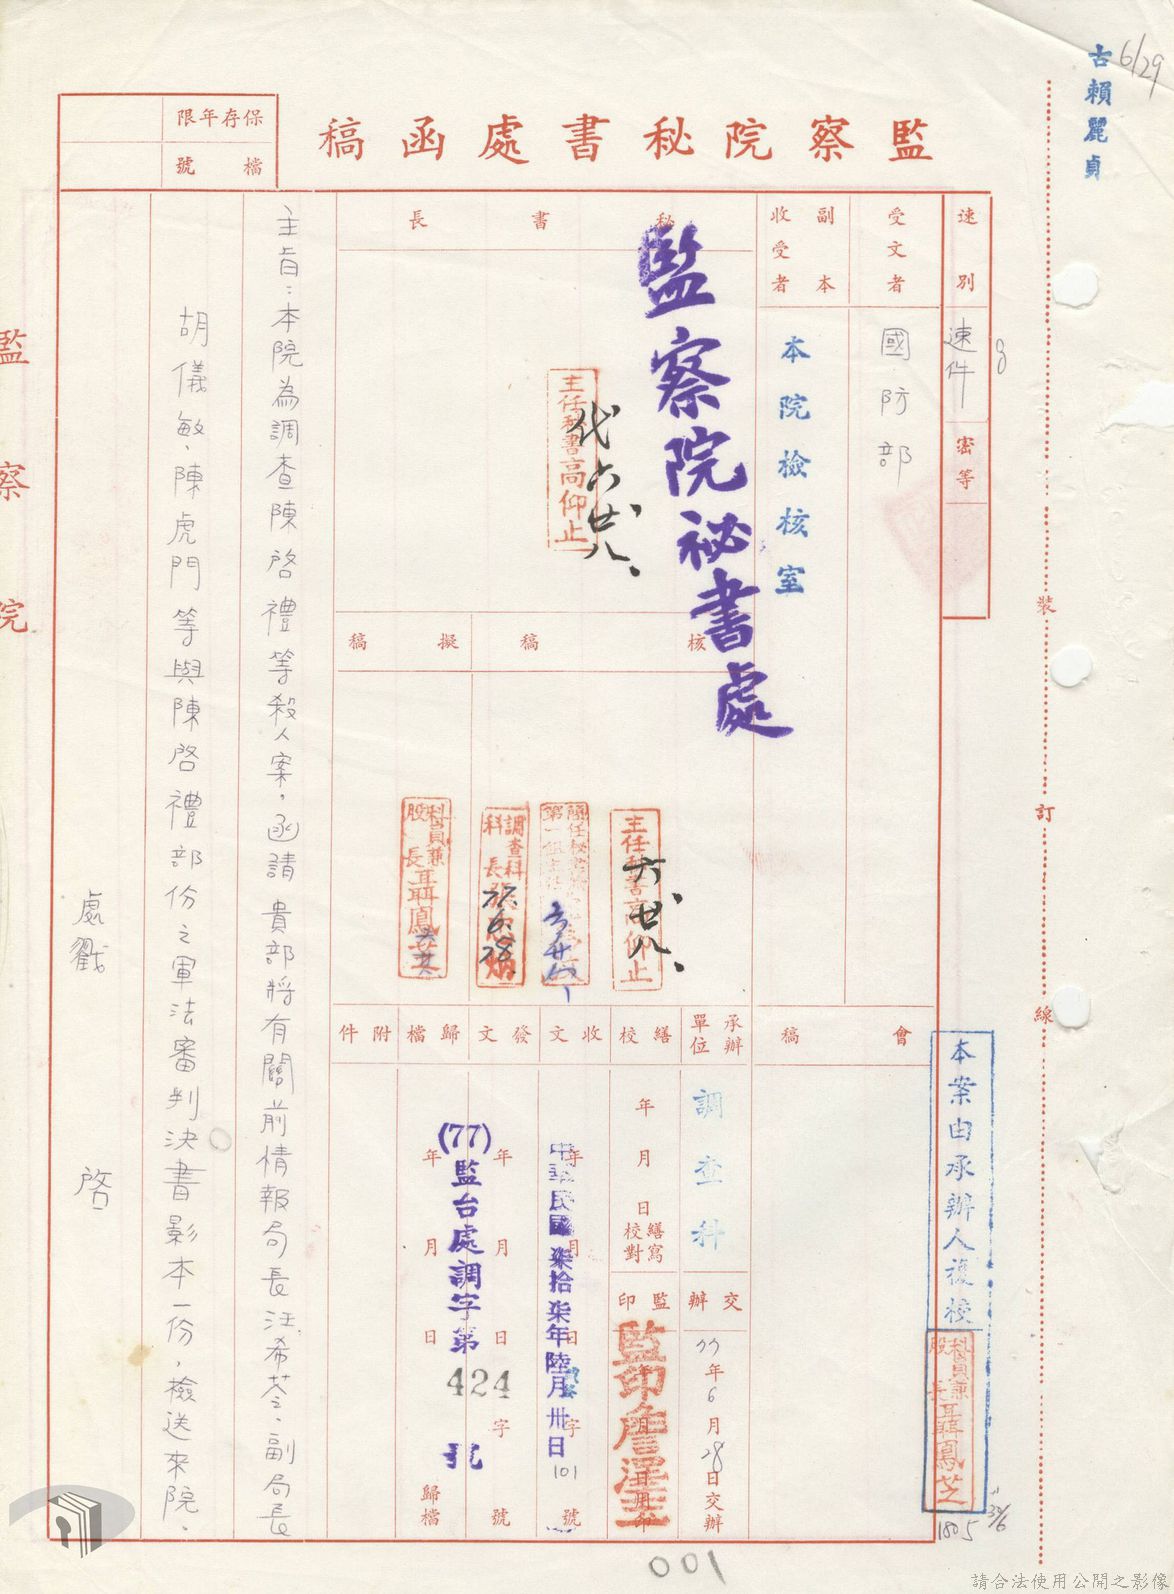 古賴麗貞
6/29
監察院秘書處函稿
保存年限
檔號
速別
速件
密等
受文者
國防部
副本收受者
本院檢核室
秘書長
監察院祕書處
主任秘書高仰止
代六廿八、
核稿
擬稿
主任秘書高仰止
六廿八、
調查科科長
77.6.28.
科員兼股長聶鳳芝
會稿
承辦單位
調查科
交辦
77年6月28日交辦
繕校
年月日繕寫校對
監印
年月日用印
收文
中華民國柒拾柒年陸月卅日
年月日字號
101
發文
年月日字號
(77)監台處調字第424號
歸檔
年月日歸檔
附件
主旨：本院為調查陳啓禮等殺人案，函請 貴部將有關前情報局長汪希苓、副局長
胡儀敏、陳虎門等與陳啓禮部份之軍法審判決書影本一份，檢送來院、
處戳 啓
本案由承辦人複校
科員兼股長聶鳳芝
1805
裝訂線
監察院
001
請合法使用公開之影像